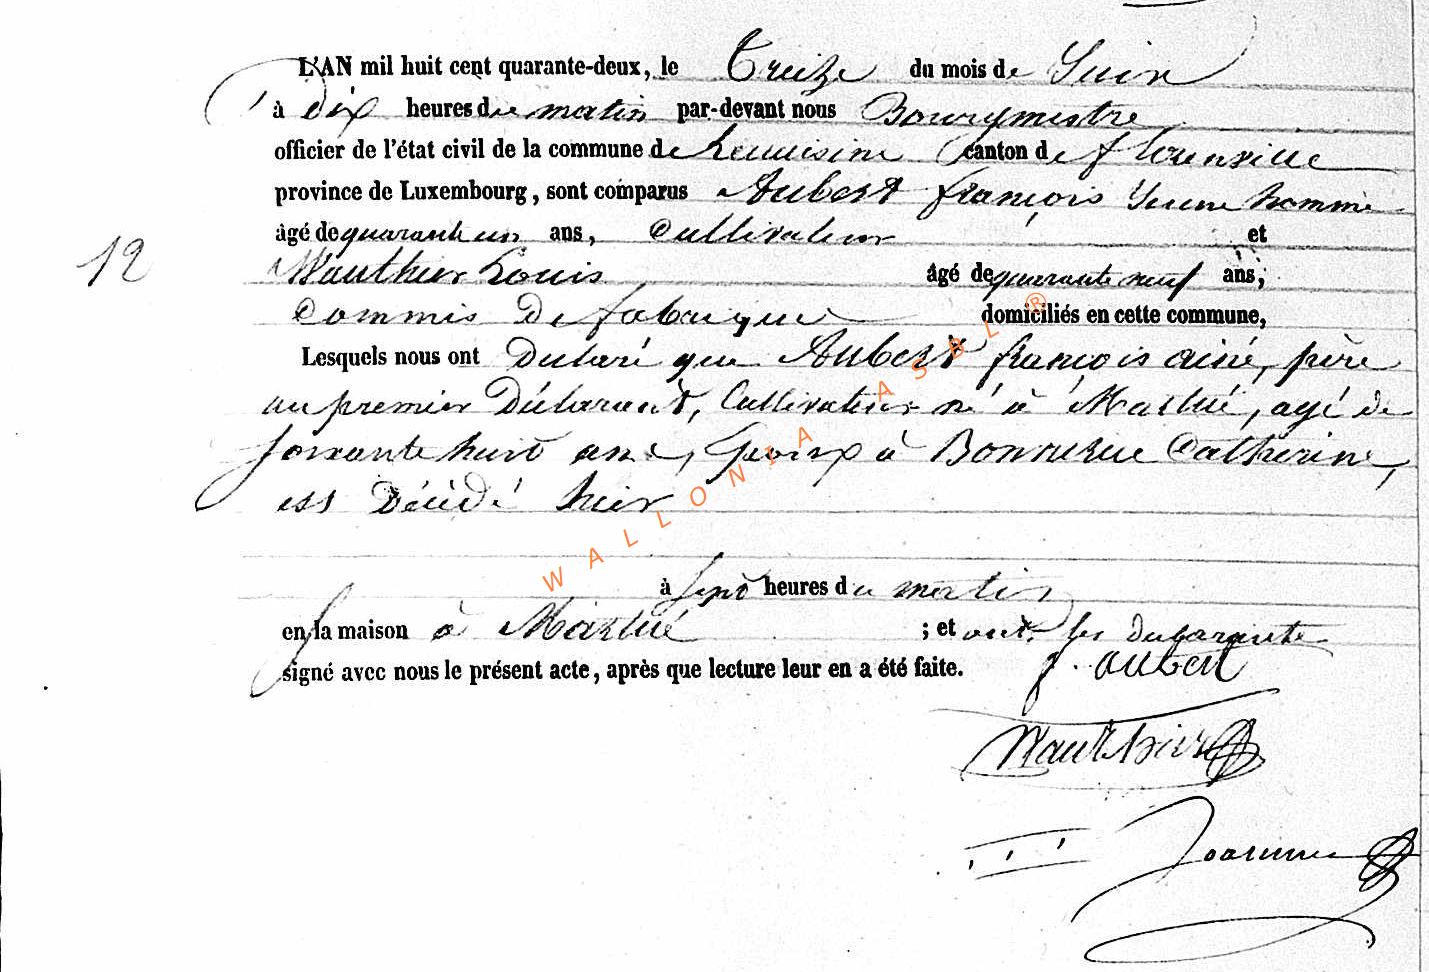 L'AN mil huit cent quarante-deux, le Treize du mois de Juin
à dix heures du matin par-devant nous Bourgmestre
officier de l'état civil de la commune de canton de florenville
province de Luxembourg, sont comparus Aubert françois Jeune homme
âgé de quarante un ans, Cultivateur et
12
Wauthier Louis âgé de quarante neuf ans,
Commis De fabrique domiciliés en cette commune,
Lesquels nous ont Déclaré que Aubert françois ainé, père
au premier Déclarant, Cultivateur né à Martué, agé de
soixante huit ans, Epoux à Catherine,
est Décédé hier
à sept heures du matin
en sa maison à Martué ; et ont les déclarants
signé avec nous le présent acte, après que lecture leur en a été faite.
f. aubert
Wauthier
WALLONIA ASBL ®